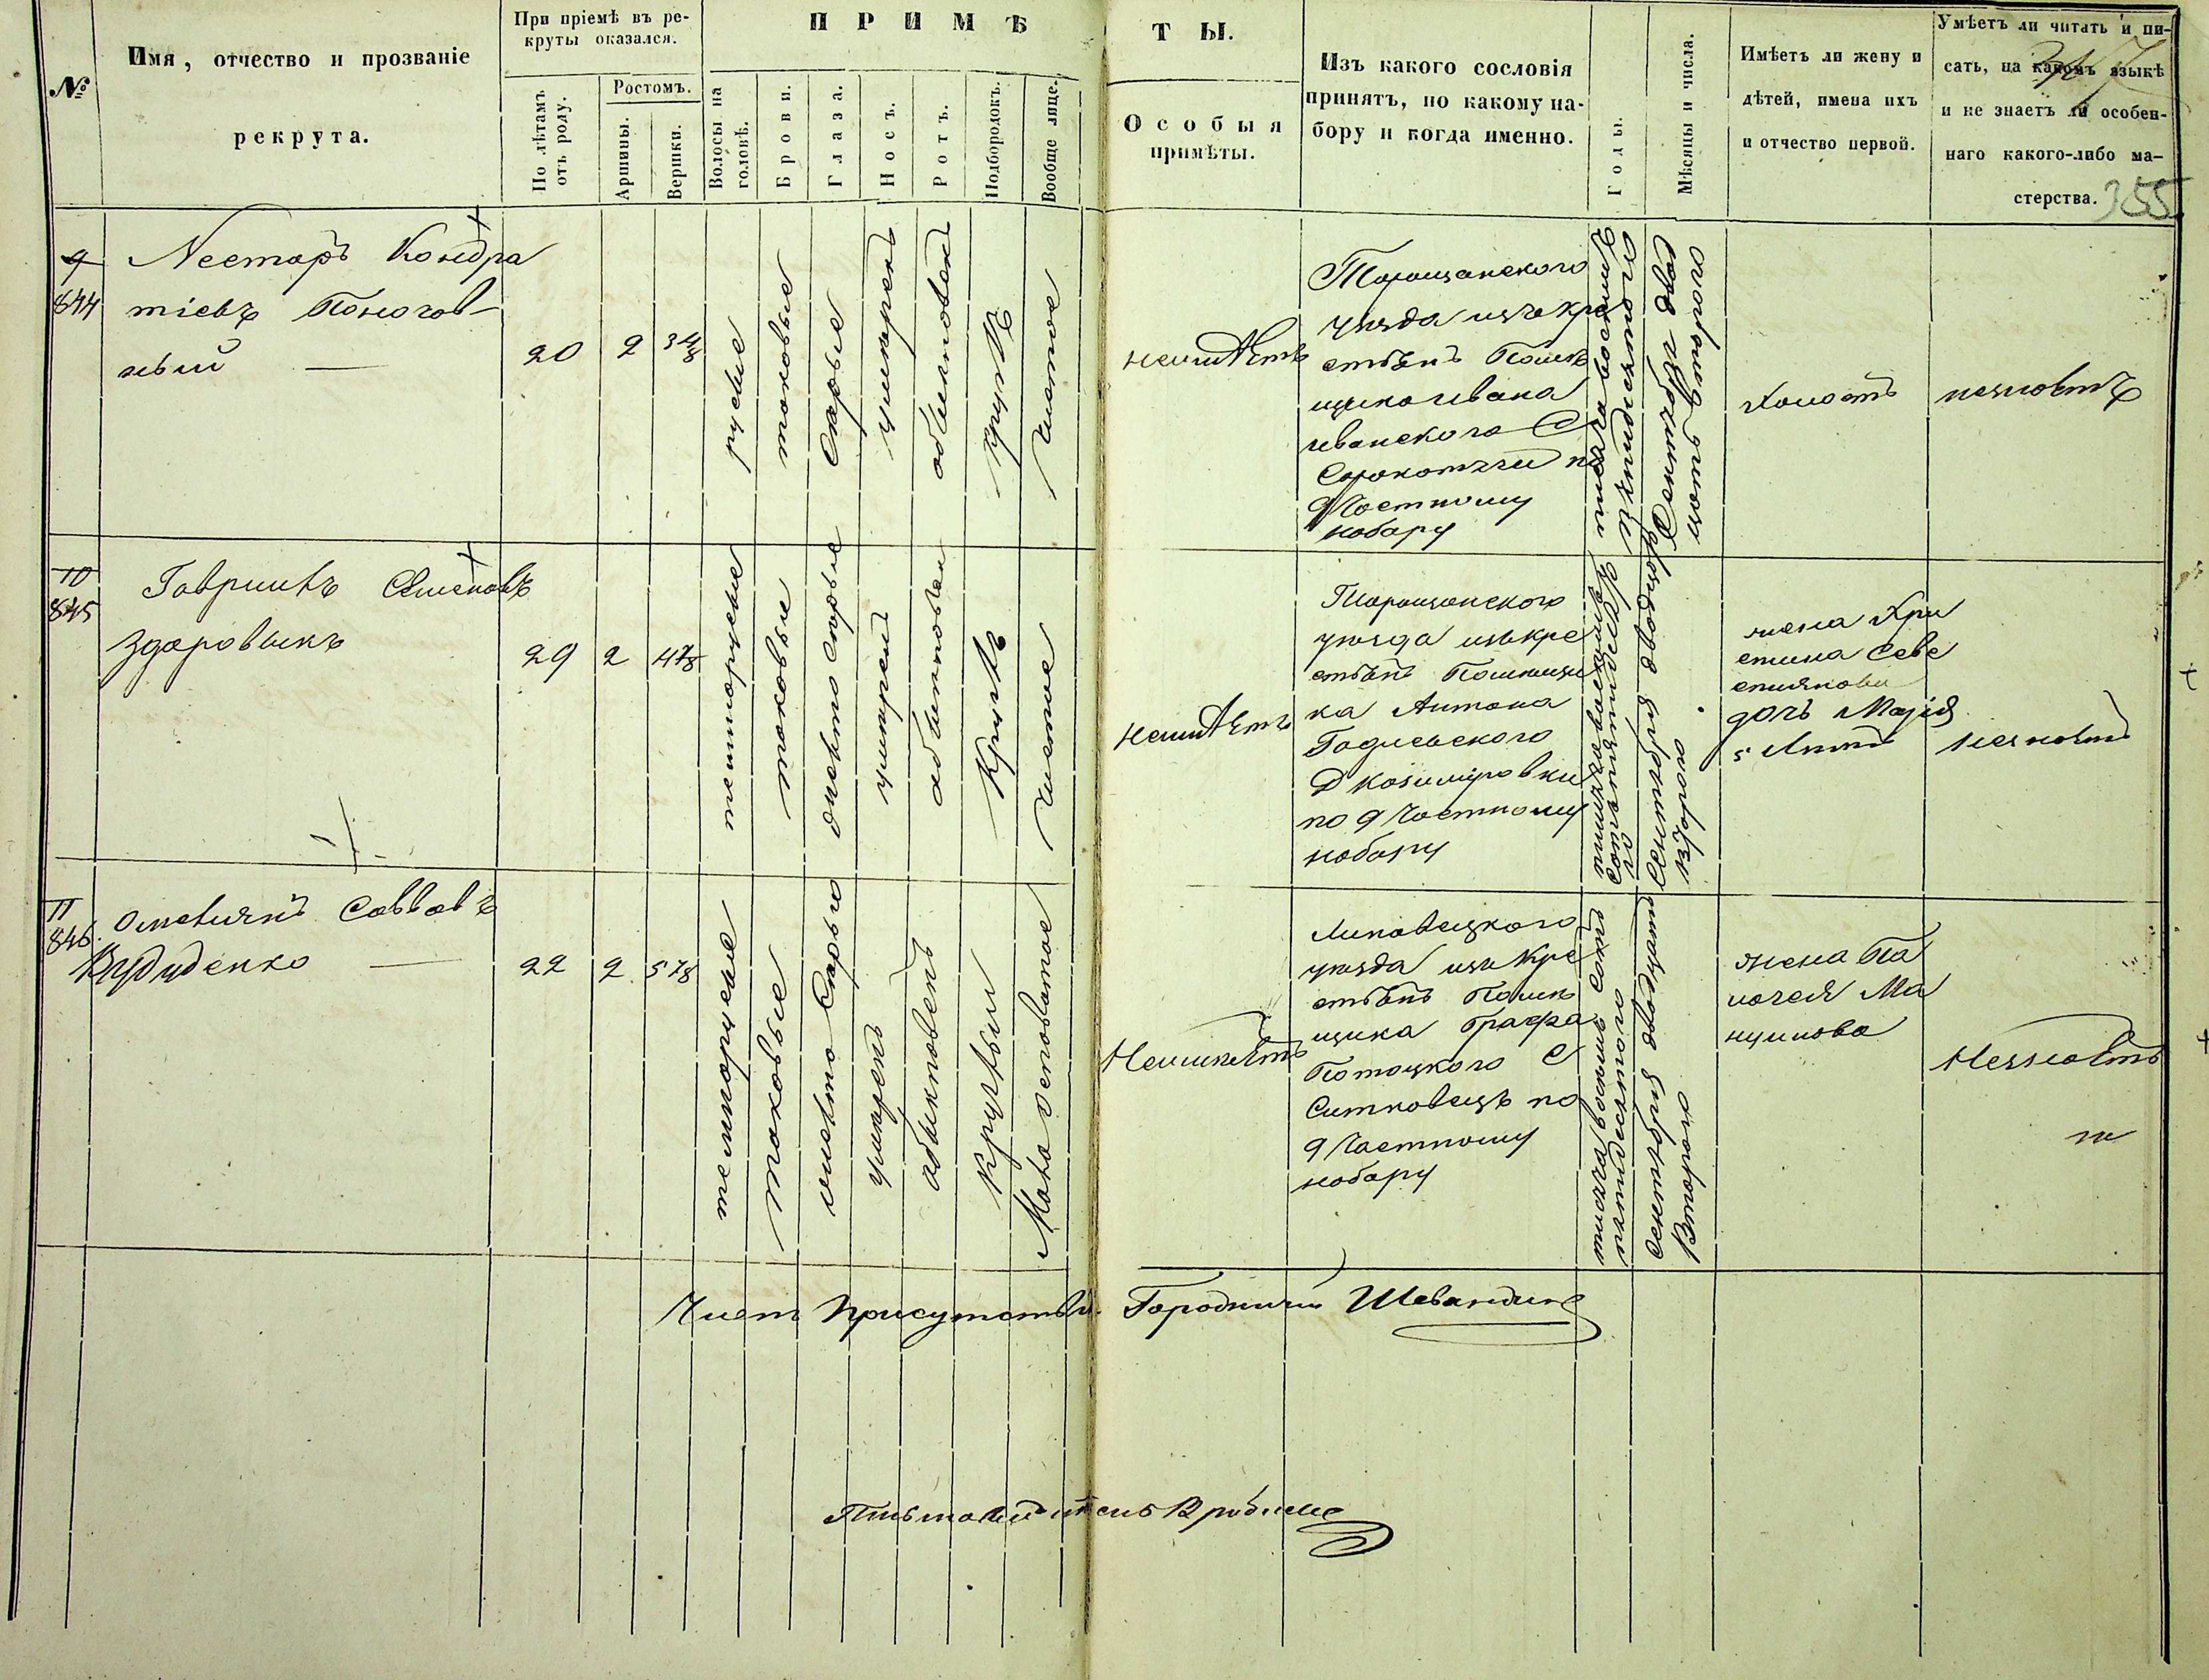 №
Имя, отчество и прозваніе
рекрута.
При пріемѣ въ ре-
круты оказался.
По лѣтамъ
отъ роду.
Ростомъ.
Аршины.
Вершки.
П Р И М Ѣ Т Ы.
Волосы на
головѣ.
Брови.
Глаза.
Носъ.
Ротъ.
Подбородокъ.
Вообще лице.
Особыя
примѣты.
Изъ какого сословія
принятъ, по какому на-
бору и когда именно.
Годы.
Мѣсяцы и числа.
Имѣетъ ли жену и
дѣтей, имена ихъ
и отчество первой.
Умѣетъ ли читать и пи-
сать, на какомъ языкѣ
и не знаетъ ли особен-
наго какого-либо ма-
стерства.
355
9
844
Несторъ Кондра
тіевъ
20
2
3 4/8
русые
таковые
Серые
умѣренъ
обикновенъ
круглъ
чистое
неимѣетъ
Таращанского
уезда изъ кре
стьянъ Помѣ
щика Ивана
Сорокотяги по
9 Частному
набору
тысяча восемьсотъ
пятидесятого
Сентября двад
цать втораго
Холостъ
незнаетъ
10
845
Гаврилъ Семеновъ
Здоровыкъ
29
2
4 7/8
темнорусые
таковые
светло серые
умѣренъ
обикновенъ
Круглъ
чистое
неимѣетъ
Таращанского
уезда изъ кре
стьянъ Помѣщи
ка Антона
Д Казиміровки
по 9 Частному
набору
тысяча восемь
сотъ пятидесято
го
Сентября двадцать
втораго
жена Хри
стина Севе
стиянова
дочь Марія
5 Лѣтъ
незнаетъ
11
846
Омелянъ Саввовъ
22
2
5 7/8
темнорусые
таковые
светло Серые
умѣренъ
обыкновенъ
круглый
Мало осповатое
Неимѣетъ
Липовецкого
уезда изъ Кре
стьянъ Помѣ
щика Графа
Потоцкого С
Ситковецъ по
9 Частному
набору
тысяча восемь сотъ
пятидесятого
Сентября двадцать
Втораго
жена Па
лагея Ма
нуилова
Незнаетъ
Членъ Присутствія Городничій